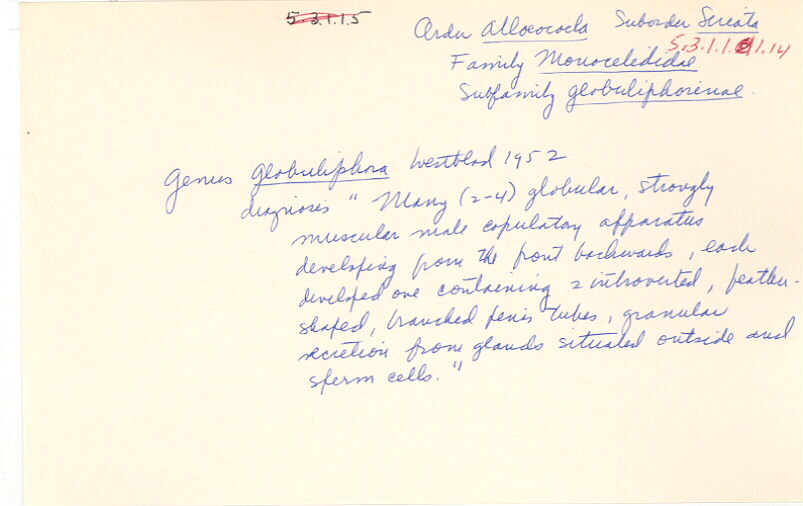 5 3.1.1.5
Order Alloeocoela Suborder Seriata
5.3.1.1. 1.14
Family Monocelididae
Subfamily globuliphorinae.
Genus Globuliphora Westblad 1952
diagnosis " Many (2-4) globular, strongly
muscular male copulatory apparatus
developing from the front backwards, each
developed one containing 2 introverted, feather-
shaped, branched penis tubes, granular
secretion from glands situated outside and
sperm cells."